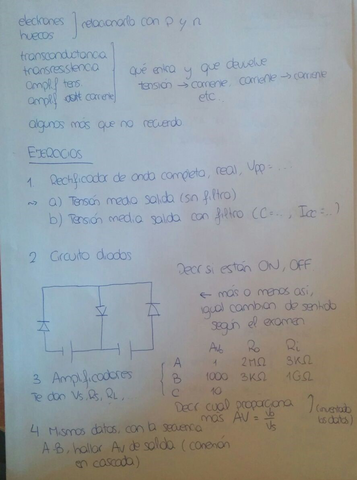 electrones
huecos
relacionarla con p y n
transconductancia
transresistencia
amplif tens
amplif corriente
qué entra y que devuelve
tension → corriente, corriente → corriente
etc
algunos más que no recuerdo
EJERCICIOS
1 Rectificador de onda completa, real, Vpp = ...
~ a) Tensión media salida (sin filtro)
b) Tensión media salida con filtro (C=..., Icc=..)
2 Circuito diodos
Decir si están ON, OFF
← más o menos así,
igual cambian de sentido
según el examen
3 Amplificadores
Te dan Vs, Rs, RL
Ri
A 1 2MΩ 3KΩ
B 1000 3KΩ 1GΩ
C 10
Decir cual proporciona
más AV = Vo/Vs
(inventado
los datos)
4 Mismos datos, con la secuencia
A-B, hallar Av de salida (conexión
en cascada)